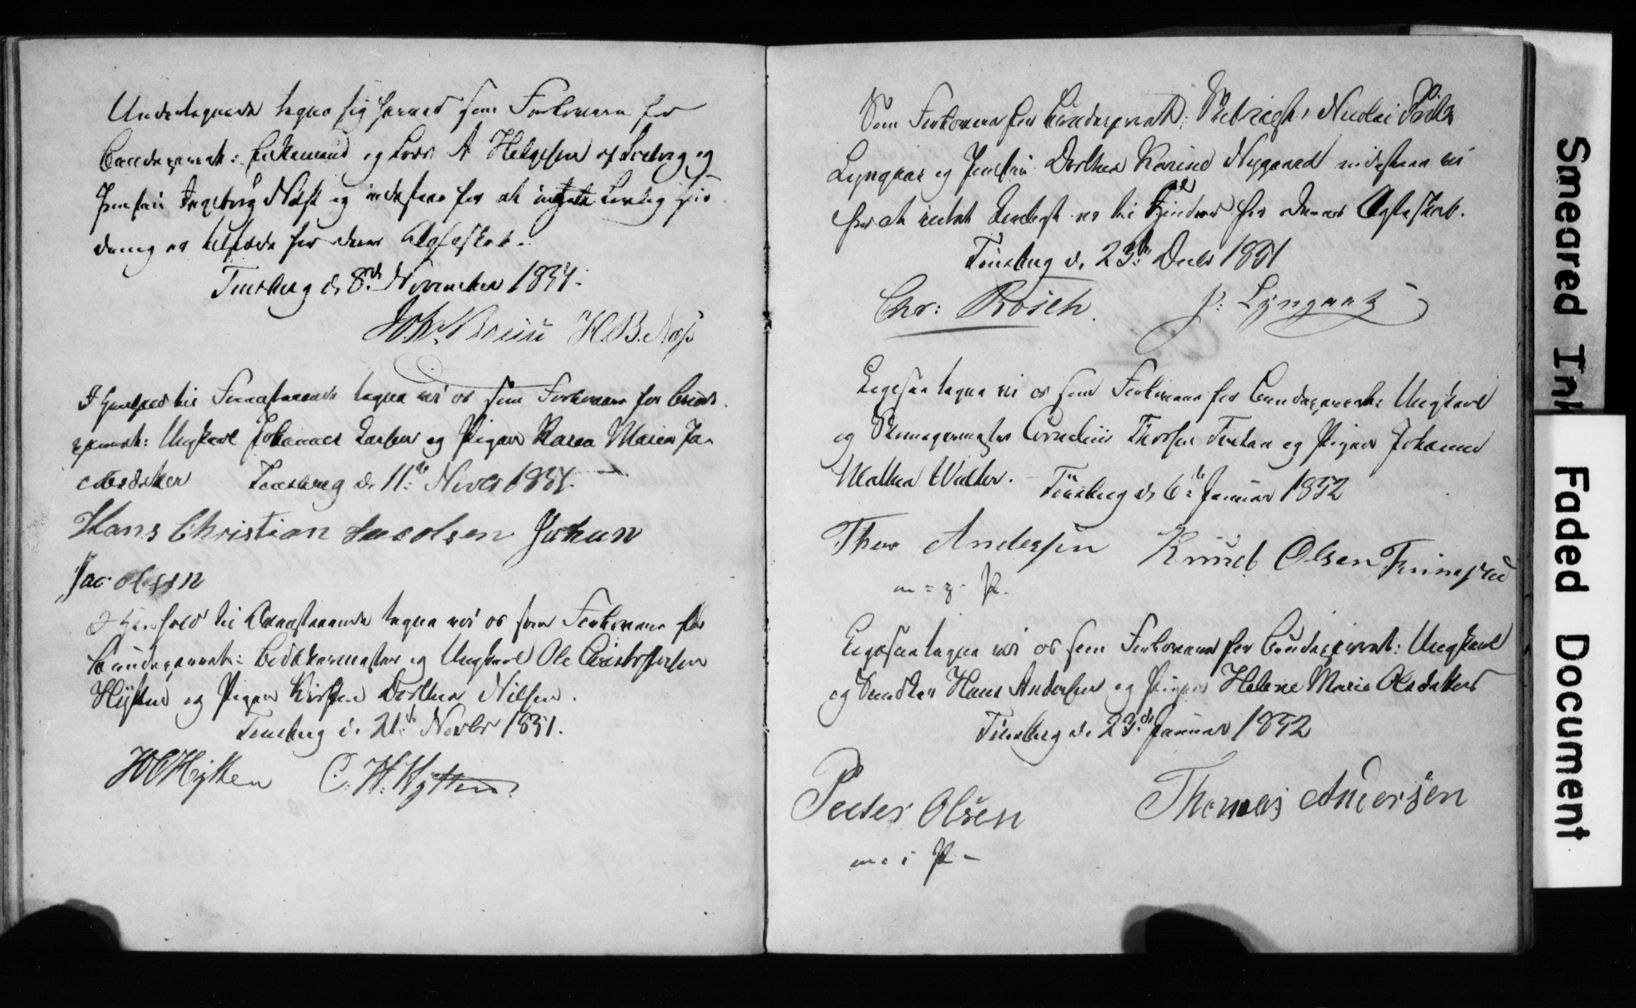 Undertegnede tegne sig herved som Forlovere for
Brudeparret: Enkemand og A Helgesen af og
Jomfrue Ingeborg Næss og indestaae for at intet Lovligt Hin-
dring er tilstede for dette Ægteskab.
Tønsberg d. 8de November 1851.
Joh. Bruu H.B. Næss
I Henhold til Foranstaaende tegne vi os som Forlovere for Brude-
parret: Ungkarl Johannes Larsen og Pigen Karen Maria Ja-
cobsdatter Tønsberg d. 11te Novbr 1851.
Hans Christian Jacobsen Johan
Jacobsen
I Henhold til Ovenstaaende tegne vi os som Forlovere for
Brudeparret: Bødkermester og Ungkarl Ole Christophersen
Hytten og Pigen Kirsten Dorthea Nilsen.
Tønsberg d. 21de Novbr 1851.
Hytten C. H. Hytten
Som Forlovere for Brudeparret: Nicolai
Lyngaas og Jomfru Dorthea Karine Nygaard indestaae vi
for at intet Lovligt er til Hinder for deres Ægteskab.
Tønsberg d. 23de Decbr 1851
Chr: Bosch. P. Lyngaas
Ligesaa tegne vi os som Forlovere for Brudeparret: Ungkarl
og Cornelius Thorsen og Pigen Johanne
Mathea Walter. Tønsberg d. 6te Januar 1852
Thor Andersen Knud Olsen
m. P.
Ligesaa tegne vi os som Forlovere for Brudeparret: Ungkarl
og Snedker Hans Andersen og Pigen Helene Marie Olsdatter
Tønsberg d. 23de Januar 1852
Peder Olsen Thomas Andersen
m. i P.
Smeared Ink
Faded Document